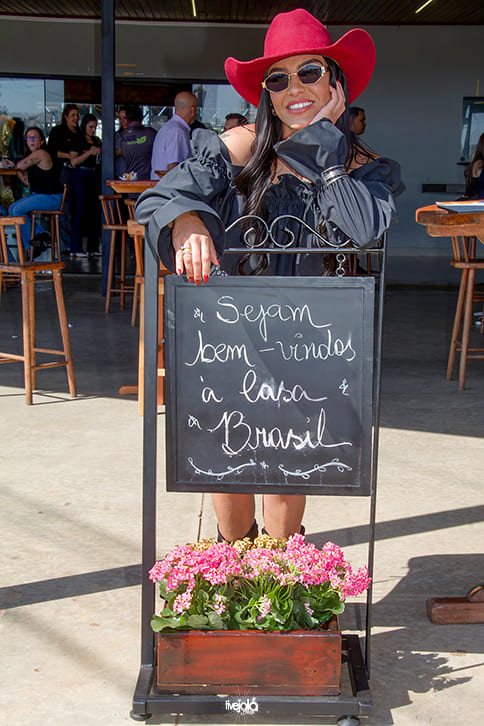 Sejam
bem-vindos
à Casa
Brasil
tivejolá